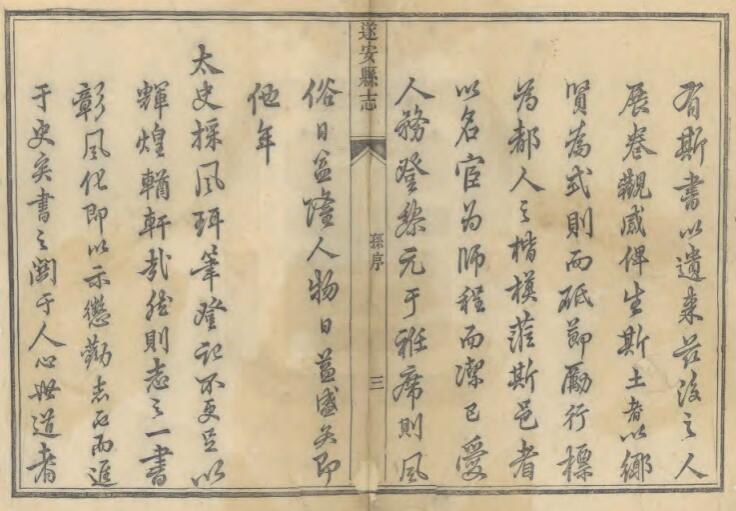 有斯書以遺來茲後之人
展卷觀感俾生斯土者以鄉
賢為式則而砥節勵行標
為都人之楷模蒞斯邑者
以名宦为師程而潔己愛
人務登黎元于袵席則風
遂安縣志
孫序
三
俗日益隆人物日益盛矣即
他年
太史採風珥筆登記不更足以
輝煌輶軒哉然則志之一書
彰風化即以示懲勸志也而進
于史矣書之關于人心世道者